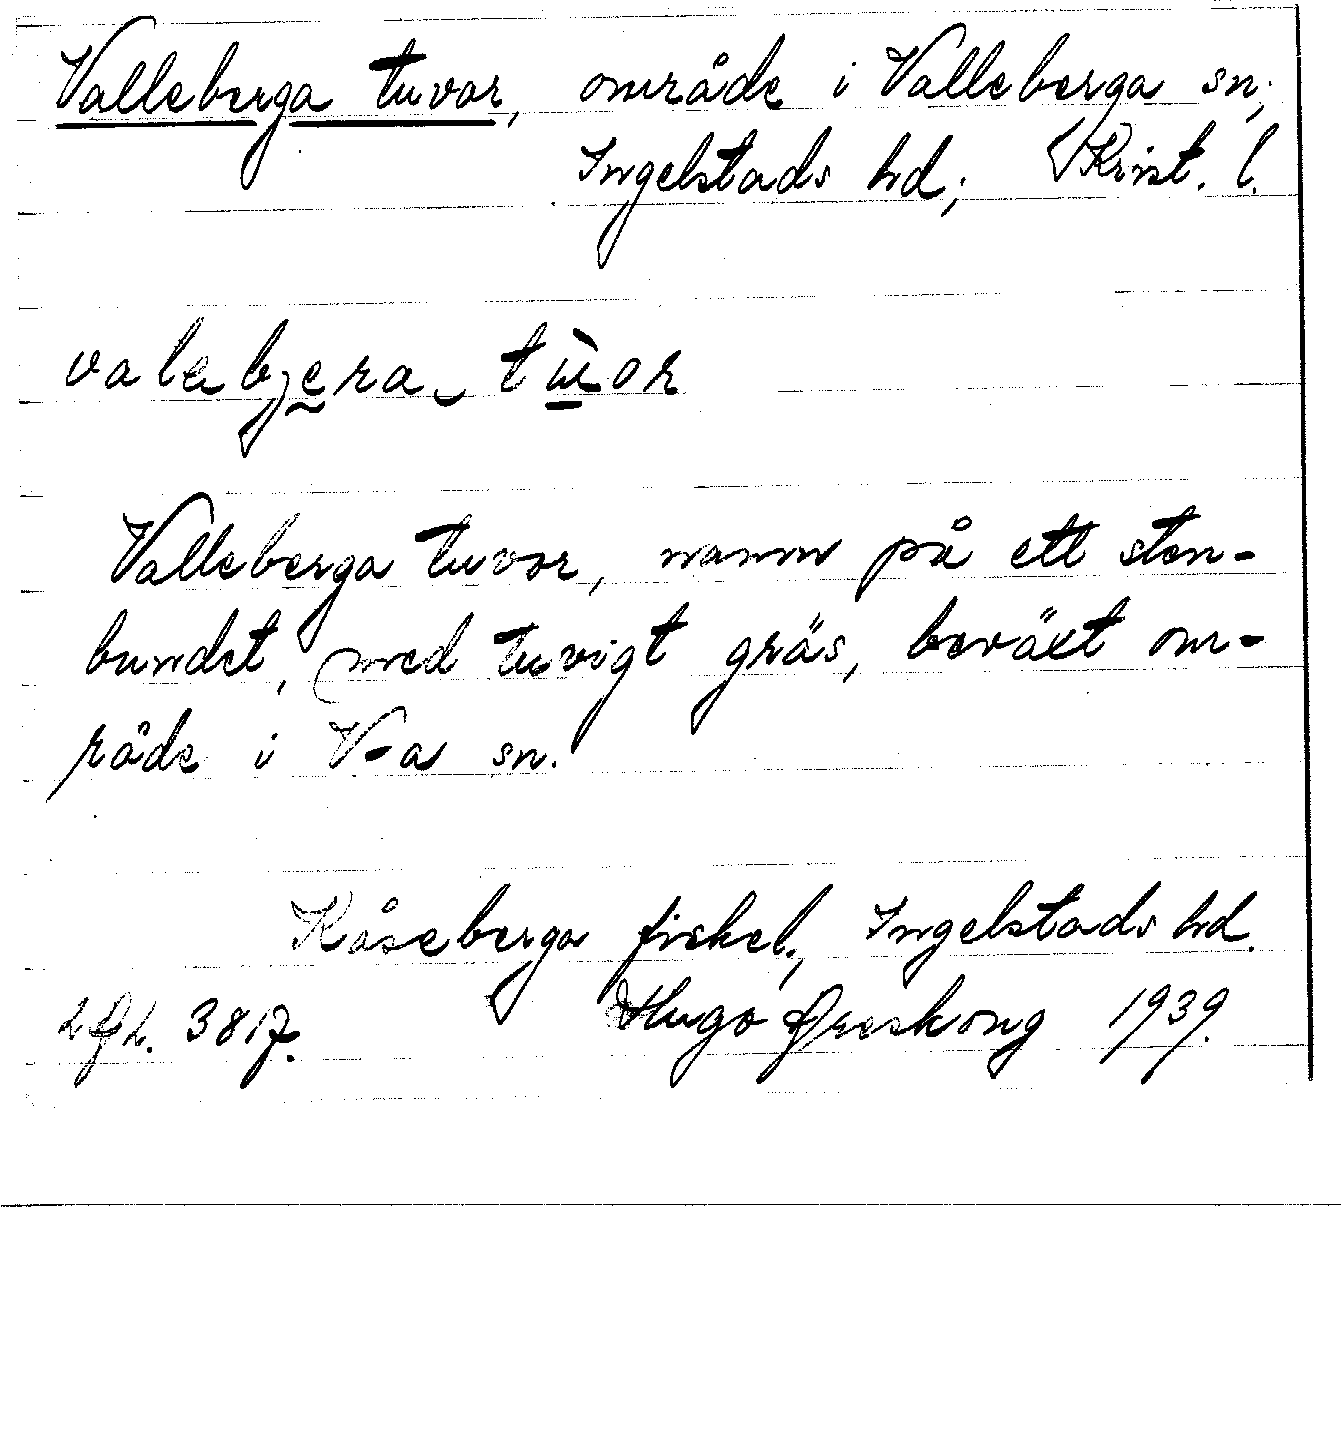 Valleberga tuvor, område i Valleberga sn;
Ingelstads hd; Krist. l.
valebjera tùor
Valleberga tuvor, namn på ett sten-
bundet, med tuvigt gräs, beväxt om-
råde i V-a sn.
Kåseberga fiskel., Ingelstads hd.
LfL. 3817. Hugo Areskoug 1939.